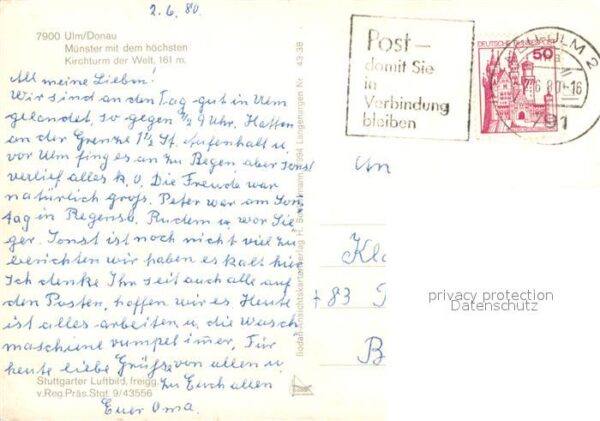 2.6.80
7900 Ulm/Donau
Münster mit dem höchsten
Kirchturm der Welt, 161 m.
All meine Lieben!
Wir sind an den Tag gut in Ulm
gelandet, so gegen 1/2 9 Uhr. Hatten
an der Grenze 1 1/2 St. Aufenhalt u.
vor Ulm fing es an zu Regen aber sonst
verlief alles k.O. Die Freude war
natürlich groß. Peter war am Son
tag in Regensb. Rudern u. wor Sie
ger. Sonst ist noch nicht viel zu
berichten wir haben es kalt hier
Ich denke Ihr seit auch alle auf
den Posten, hoffen wir es Heute
ist alles arbeiten u. die Wasch
maschiene rumpel imer. Für
heute liebe Grüße von allen u.
zu Euch allen
Euer Oma.
Stuttgarter Luftbild, freigg.
v.Reg.Präs.Stgt. 9/43556
Bodan-Ansichtskartenverlag H. 7994 Langenargen Nr 43-38
Post –
damit Sie
in
Verbindung
bleiben
DEUTSCHE BUNDESPOST
50
NEU-ULM 2
6.80-16
791
An
Kl
83
B
privacy protection
Datenschutz